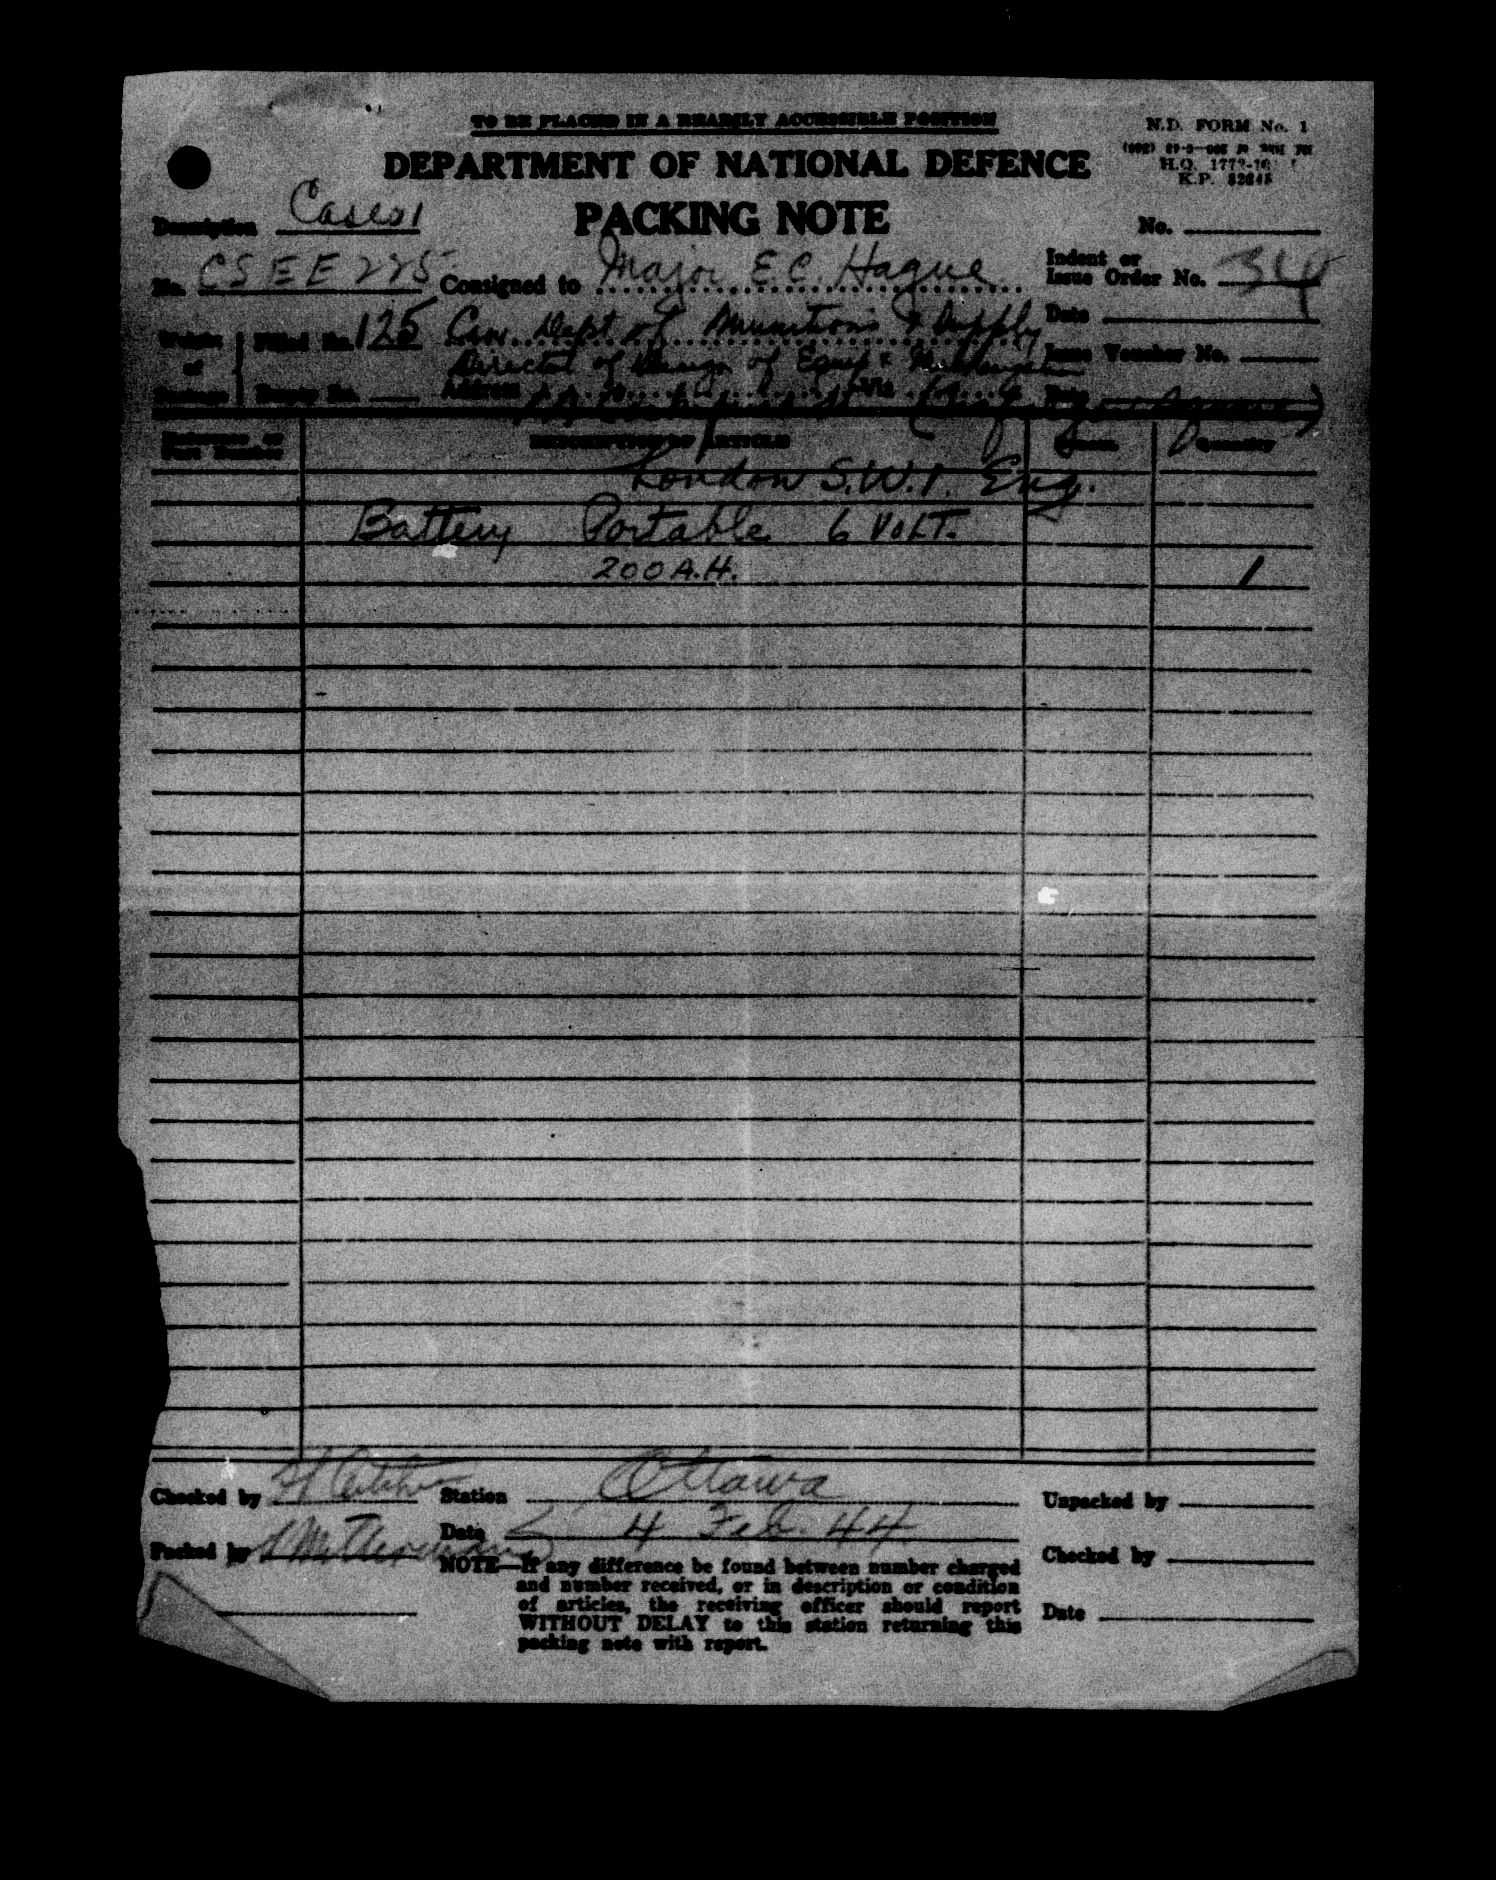 TO BE PLACED IN A READILY ACCESSIBLE POSITION
N.D. FORM No. 1
DEPARTMENT OF NATIONAL DEFENCE
H.Q. 1772-
K.P.
Description Cases 1
PACKING NOTE
No.
No. CSEE 225
Consigned to Major E.C. Hague
Indent or
Issue Order No. 34
Weight of Package
Filled lbs. 125
Empty lbs.
Can. Dept of Munitions & Supply
Date
Director of Design of Equip &
Issue Voucher No.
Address
Via
Date
Reference or
Part Number
DESCRIPTION OF ARTICLE
Quantity
London S.W.1. Eng.
Battery Portable 6 VOLT.
200 A.H. 1
Checked by
Station Ottawa
Unpacked by
Packed by
Date 4 Feb. 44
Checked by
NOTE—If any difference be found between number charged
and number received, or in description or condition
of articles, the receiving officer should report
Date
WITHOUT DELAY to this station returning this
packing note with report.